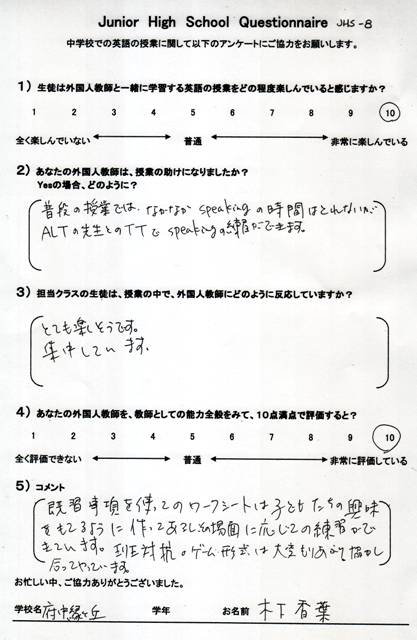 Junior High School Questionnaire JHS-8
中学校での英語の授業に関して以下のアンケートにご協力をお願いします。
1) 生徒は外国人教師と一緒に学習する英語の授業をどの程度楽しんでいると感じますか?
1 2 3 4 5 6 7 8 9 10
全く楽しんでいない 普通 非常に楽しんでいる
2) あなたの外国人教師は、授業の助けになりましたか?
Yesの場合、どのように?
普段の授業では、なかなか speakingの時間はとれないが
ALTの先生とのTTで speakingの練習ができます。
3) 担当クラスの生徒は、授業の中で、外国人教師にどのように反応していますか?
とても楽しそうです。
集中しています。
4) あなたの外国人教師を、教師としての能力全般をみて、10点満点で評価すると?
1 2 3 4 5 6 7 8 9 10
全く評価できない 普通 非常に評価している
5) コメント
既習事項を使ってのワークシートは子どもたちの興味
をもてるように作ってあるし その場面に応じての練習ができ
ています。班対抗のゲーム形式は大変もりあがって協力し
合ってやっています。
お忙しい中、ご協力ありがとうございました。
学校名 府中緑ヶ丘 学年 お名前 木下香葉